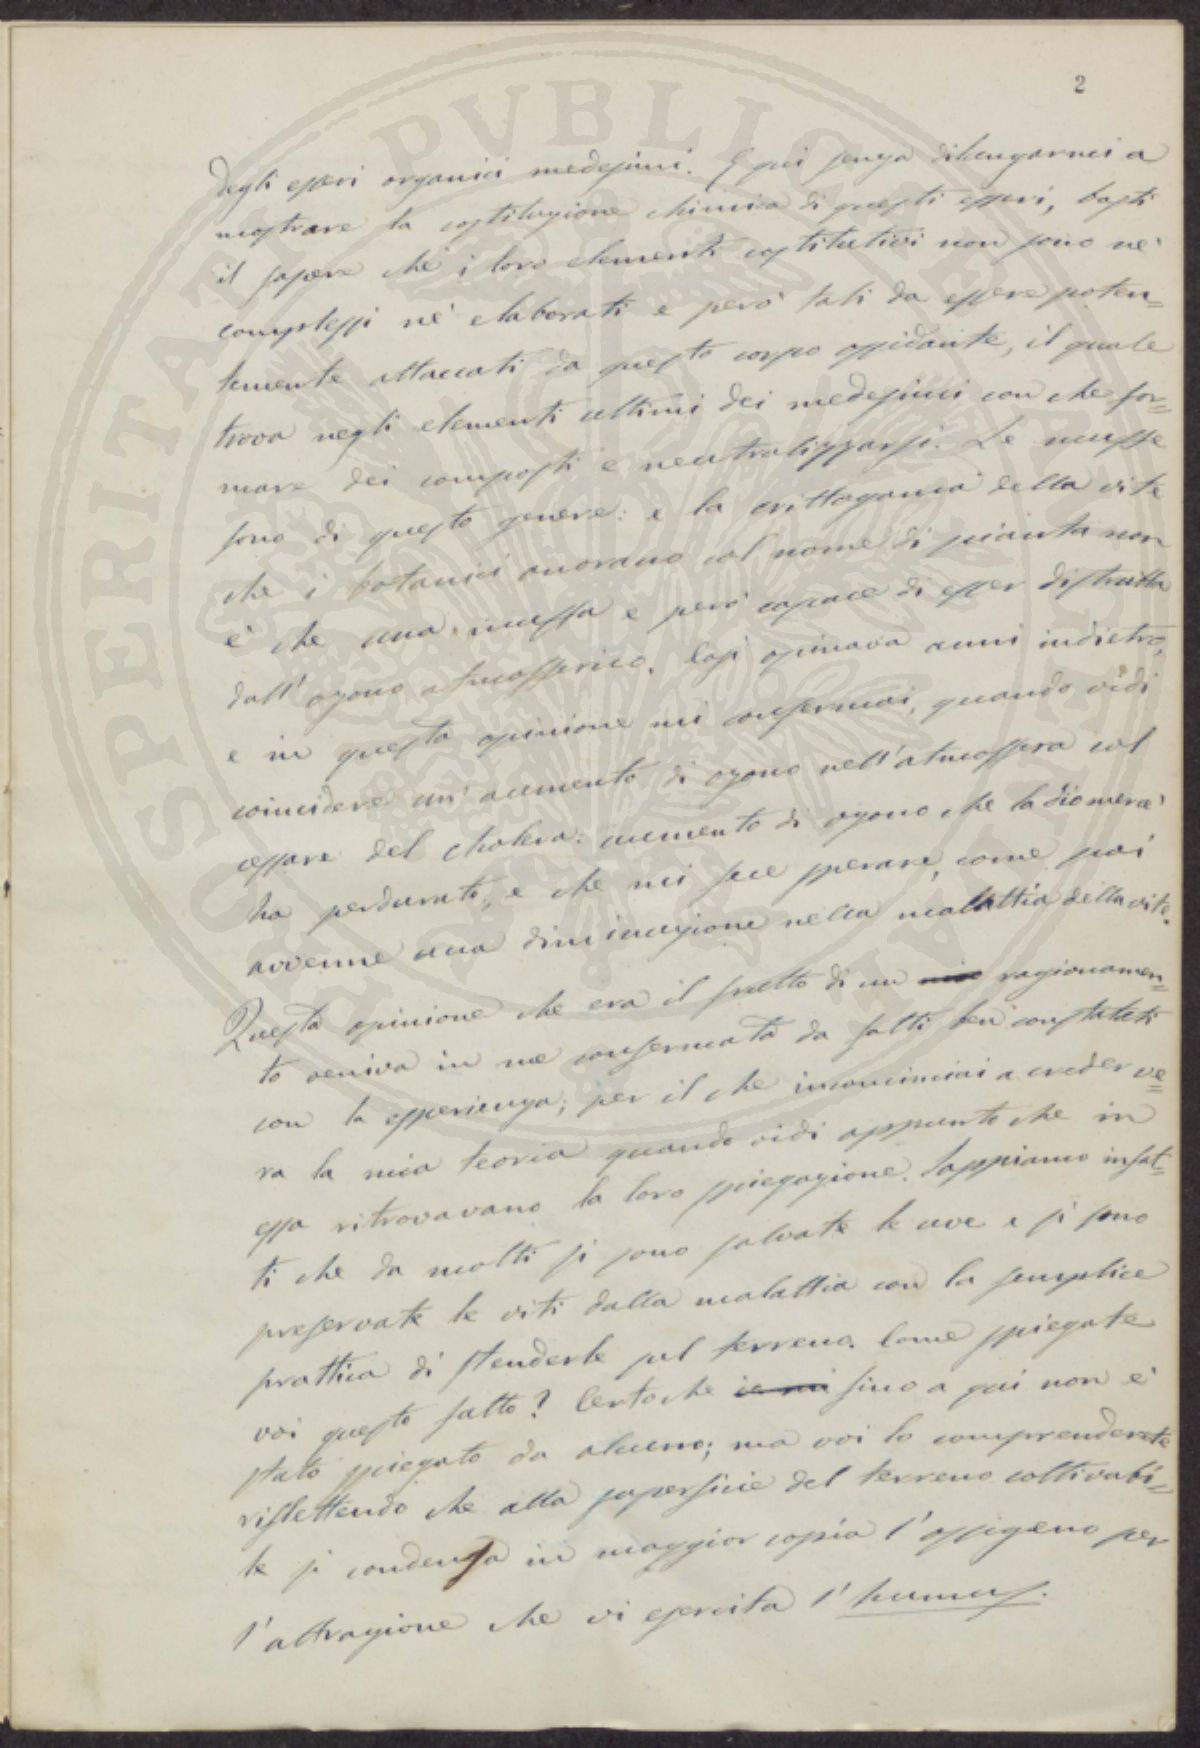 2
degli esseri organici medesimi. E qui senza dilungarmi a
mostrare la costituzione chimica di questi esseri, basti
il sapere che i loro elementi costitutivi non sono nè
complessi nè elaborati e però tali da essere poten=
temente attaccati da questo corpo ossidante, il quale
trova negli elementi ultimi dei medesimi con che for=
mare dei composti e neutralizzarsi. Le muffe
sono di questo genere: e la crittogama della vite
che i botanici onorano col nome di pianta non
è che una muffa e però capace di esser distrutta
dall'ozono atmosferico. Così opinava anni indietro,
e in questa opinione mi confermai, quando vidi
coincidere un'aumento di ozono nell'atmosfera col
cessare del cholera: aumento di ozono che la Dio mercè
ha perdurato, e che mi fece sperare, come poi
avvenne una diminuzione nella malattia della vite.
Questa opinione che era il frutto di un mio ragionamen=
to veniva in me confermata da fatti ben constatati
con la esperienza; per il che incominciai a creder ve=
ra la mia teoria quando vidi appunto che in
essa ritrovavano la loro spiegazione. Sappiamo infat=
ti che da molti si sono salvate le uve e si sono
preservate le viti dalla malattia con la semplice
prattica di stenderle sul terreno. Come spiegate
voi questo fatto? Certo che sino a qui non è
stato spiegato da alcuno; ma voi lo comprenderete
riflettendo che alla superficie del terreno coltivabi=
le si condensa in maggior copia l'ossigeno per
l'attrazione che vi esercita l'humus.
PVBLIC